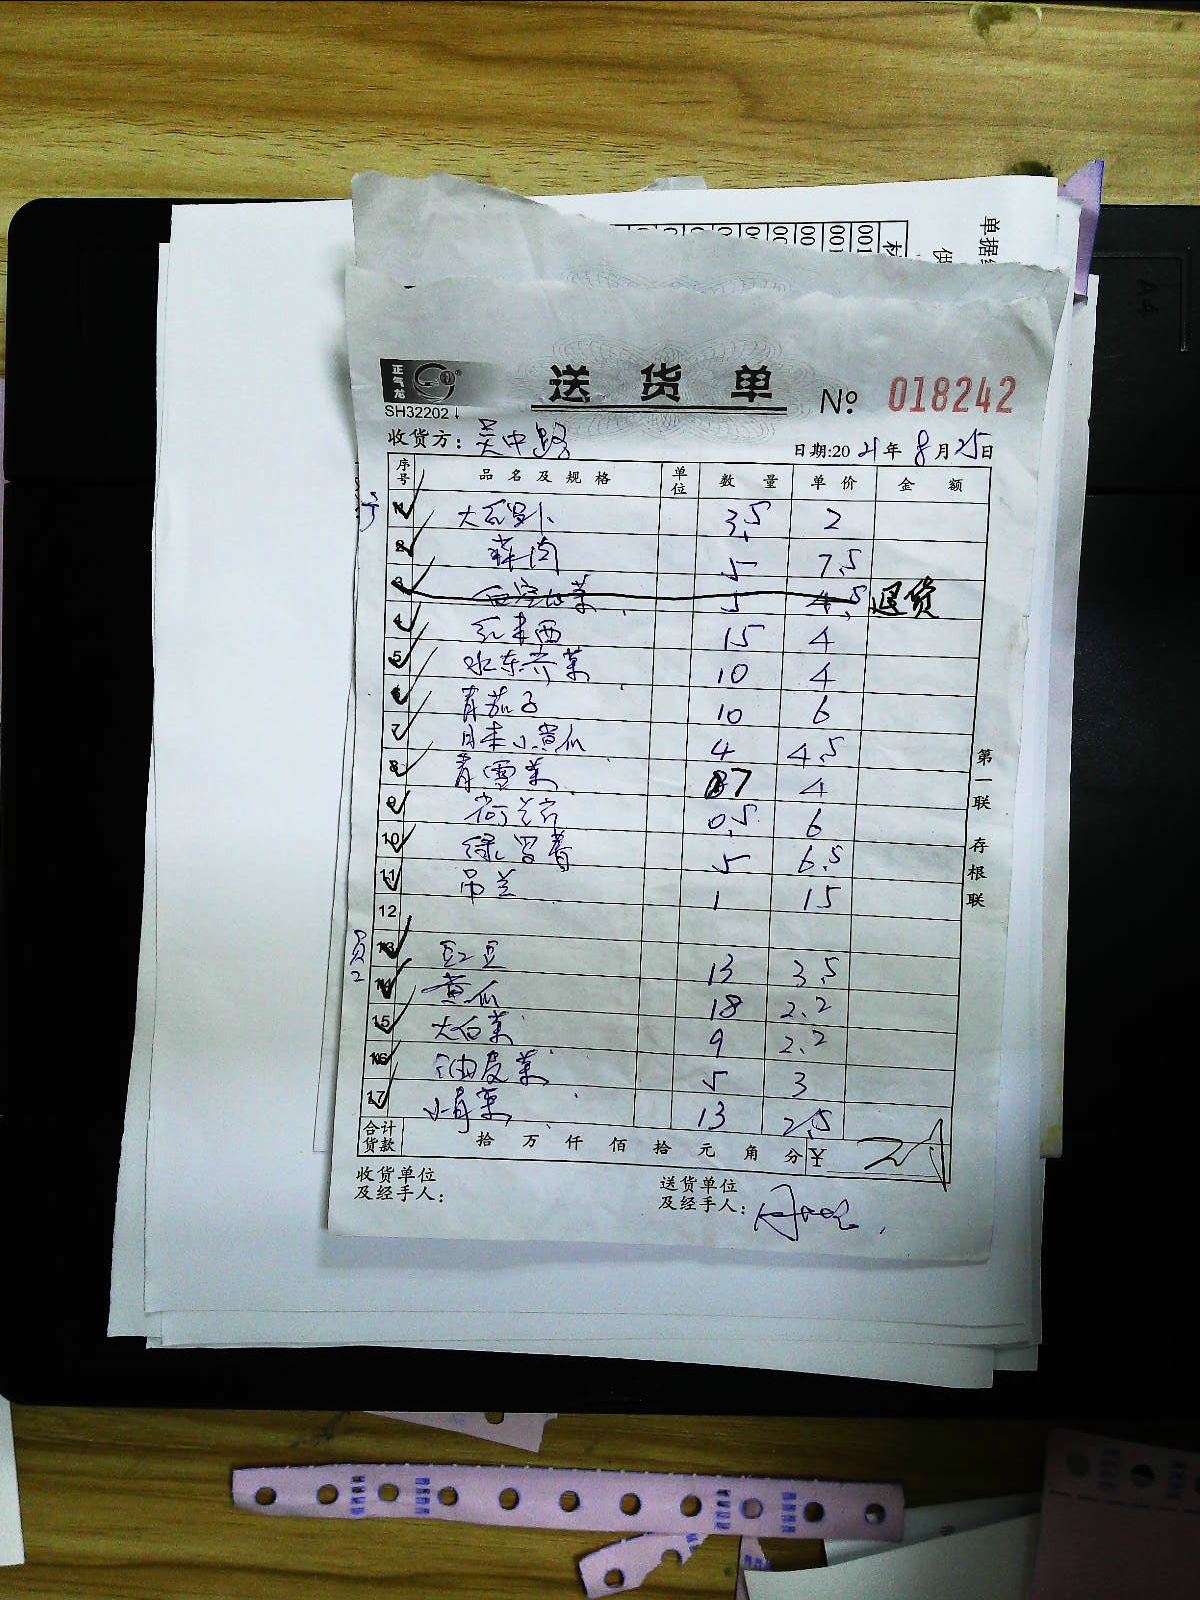 单据
供
材
001
001
00
00
A4
正气龙
送 货 单 № 018242
SH32202
收货方：吴中路 日期:2021年8月25日
序号 品名及规格 单位 数量 单价 金额
1 大红萝卜 3.5 2
2 蒜肉 5 7.5
3 5 4.5 退货
4 15 4
5 水东芥菜 10 4
6 青茄子 10 6
7 日本小黄瓜 4 4.5
8 7 4
9 荷兰芹 0.5 6
10 5 6.5
11 吊兰 1 15
12
13 豇豆 13 3.5
14 黄瓜 18 2.2
15 大白菜 9 2.2
16 油皮菜 5 3
17 小青菜 13 2.5
合计货款 拾 万 仟 佰 拾 元 角 分 ¥
收货单位及经手人：
送货单位及经手人：
第一联 存根联